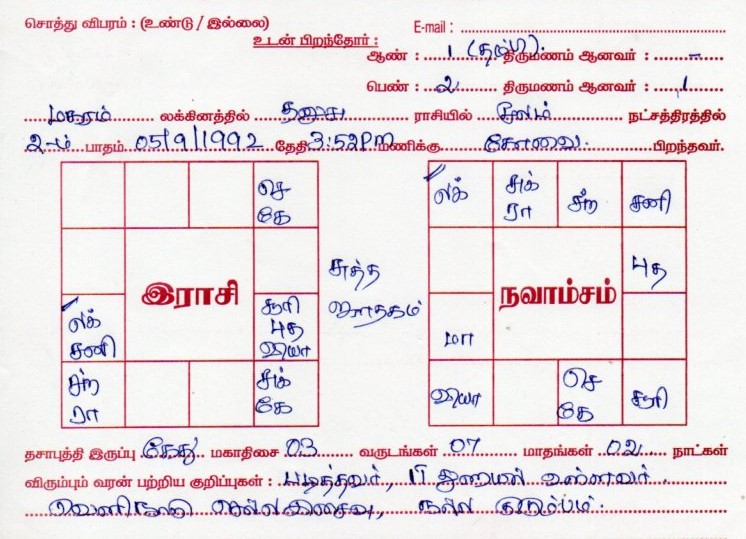 சொத்து விபரம் : (உண்டு / இல்லை)
E-mail :
உடன் பிறந்தோர் :
ஆண் : 1 (தம்பி) திருமணம் ஆனவர் : -
பெண் : 2 திருமணம் ஆனவர் : 1
மகரம் லக்கினத்தில் தனுசு ராசியில் மூலம் நட்சத்திரத்தில்
2-ம் பாதம் 05/9/1992 தேதி 3:52PM மணிக்கு கோவை பிறந்தவர்.
செ
கே
இராசி
லக்
சனி
சூரி
புத
வியா
சந்
ரா
சுக்
கே
சுத்த
ஜாதகம்
லக்
சுக்
ரா
சந்
சனி
புத
நவாம்சம்
மா
வியா
செ
கே
சூரி
தசாபுத்தி இருப்பு கேது மகாதிசை 03 வருடங்கள் 07 மாதங்கள் 02 நாட்கள்
விரும்பும் வரன் பற்றிய குறிப்புகள் : படித்தவர், IT துறையில் உள்ளவர்
வெளிநாடு செல்ல நல்ல குடும்பம்.